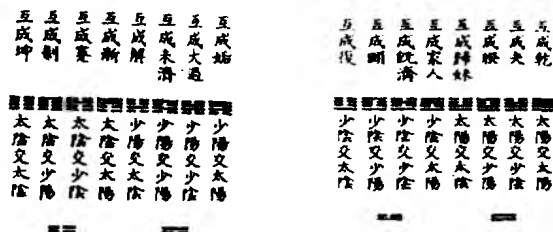 互成乾
互成夬
互成睽
互成歸妹
互成家人
互成旣濟
互成頤
互成復
太陽交太陽
太陽交少陰
太陽交少陽
太陽交太陰
少陰交太陽
少陰交少陰
少陰交少陽
少陰交太陰
互成姤
互成大過
互成未濟
互成解
互成漸
互成蹇
互成剝
互成坤
少陽交太陽
少陽交少陰
少陽交少陽
少陽交太陰
太陰交太陽
太陰交少陰
太陰交少陽
太陰交太陰